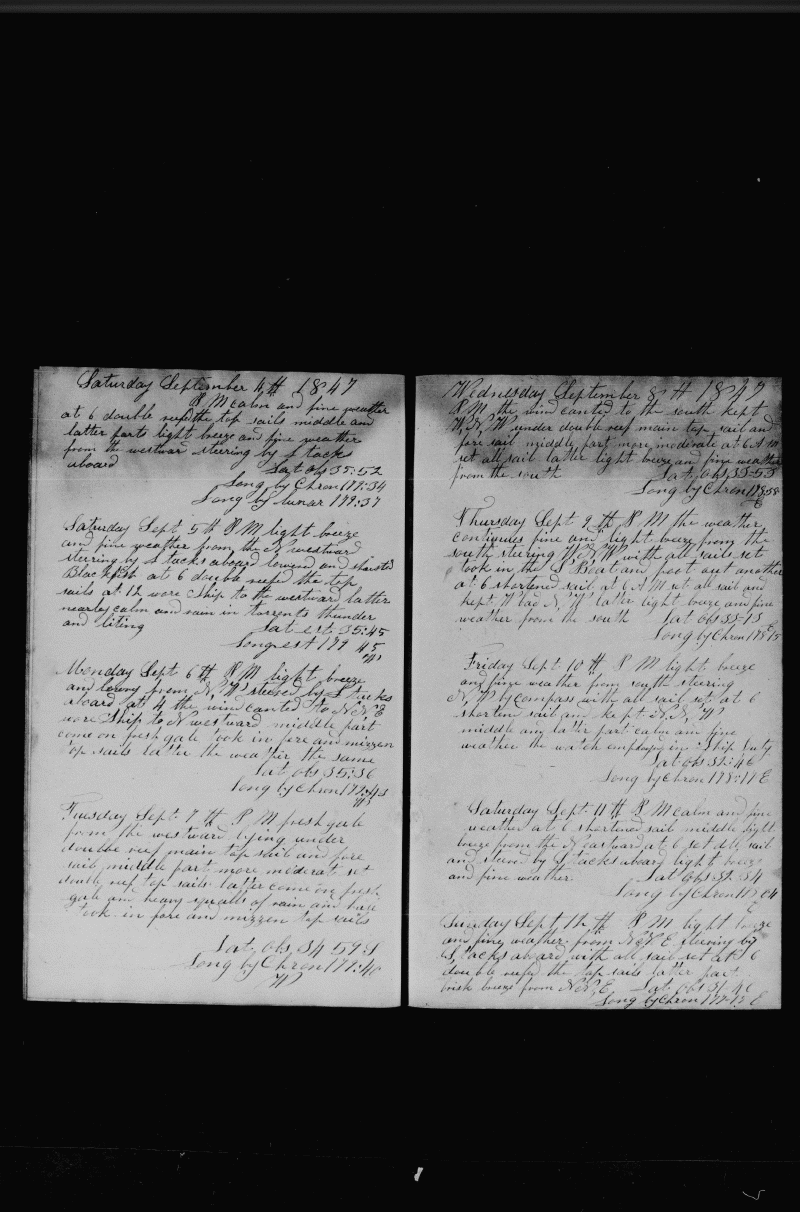 Saturday September 4th 1847
P M calm and fine weather
at 6 double reefd the top sails middle and
latter parts light breeze and fine weather
from the westwar steering by S tacks
aboard Lat obs 35:52
Long by Chron 179:34
Long by lunar 179:37
Saturday Sept 5th P M light breeze
and fine weather from the N westward
steering by S tacks aboard lowerd and
at 6 double reefd the top
sails at 12 wore Ship to the westward latter
nearley calm and rain in torrents thunder
and liting Lat est 35:45
Long est 179 45
W
Monday Sept 6th P M light breeze
and from N. W. steered by S tacks
aboard at 4 the win canted to N. N. E
wore Ship to N westward middle part
come on fresh gale took in fore and mizzen
top sails latter the weather the same
Lat obs 35:36
Long by Chron 179:43
W
Tuesday Sept 7th P M fresh gale
from the westward lying under
double reef main top sail and fore
sail middle part more moderate set
double reef top sails latter come on fresh
gale and heavy squalls of rain and
took in fore and mizzen top sails
Lat obs 34 59 S
Long by Chron 179:40
W
Wednesday September 8th 1847
P M the win canted to the south kept
W. N. W under double reef main top sail and
fore sail middle part more moderate at 6 A M
set all sail latter light breeze and fine weather
from the south Lat obs 33-53
Long by Chron 178:58
E
Thursday Sept 9th P M the weather
continues fine and light breeze from the
south steering W. N. W with all sails set
took in the S Boat and poot out another
at 6 shortened sail at 6 A M set all sail and
kept W N. W latter light breeze and fine
weather from the south Lat obs 33-13
Long by Chron 178 15
Friday Sept 10th P M light breeze
and fine weather from south steering
N. W by compass with all sail set at 6
shorten sail and kept N. N. W
middle and later part calm and fine
weather the watch employ in Ship duty
Lat obs 32:46
Long by Chron 178:11 E
Saturday Sept 11th P M calm and fine
weather at 6 shortened sail middle light
breeze from the N eastward at 6 set all sail
and steerd by S tacks aboard light breeze
and fine weather Lat obs 32. 34
Long by Chron 178 04
E
Sunday Sept 12th P M light breeze
and fine weather from N. N. E steering by
S. tacks aboard with all sail set at 6
double reefd the top sails latter part
brisk breeze from N. N. E Lat obs 31. 46
Long by Chron 177-12 E